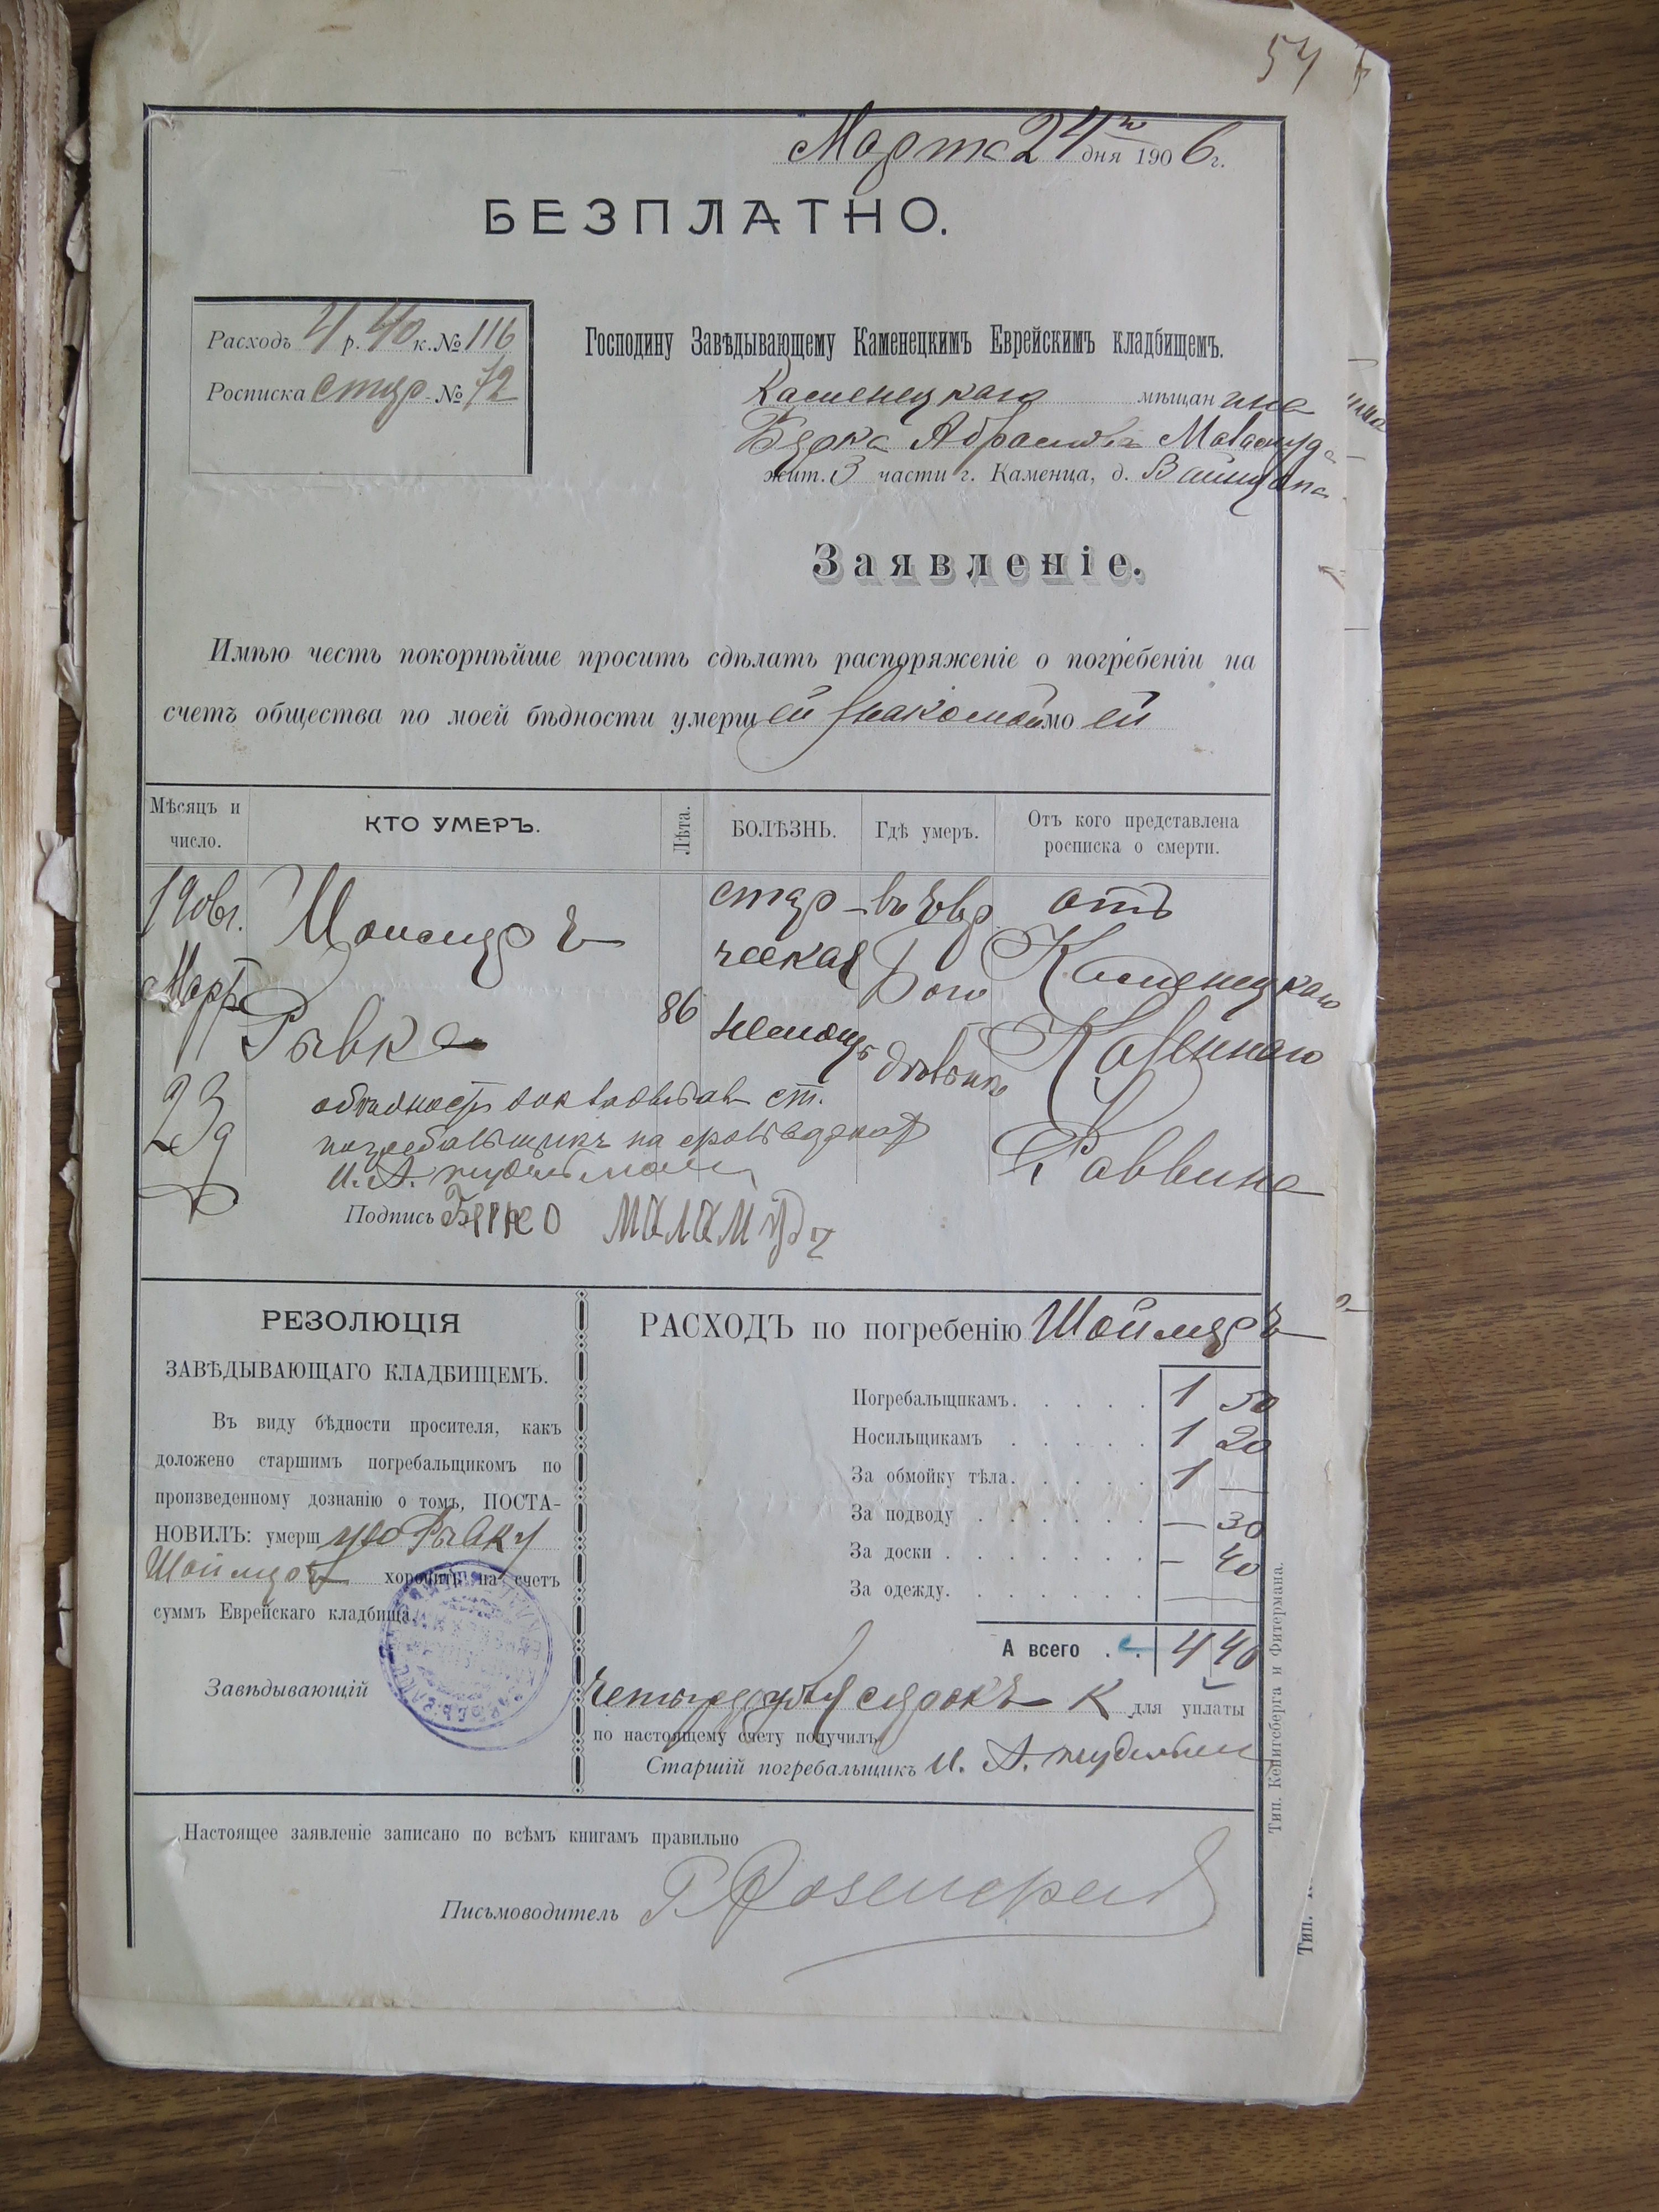 54
Марта 24 дня 1906 г.
БЕЗПЛАТНО.
Расходъ 4 р. 40 к. № 116
Росписка стар № 72
Господину Завѣдывающему Каменецкимъ Еврейскимъ кладбищемъ.
Каменецкаго мѣщанина
Берка Абрамова Маламуда
жит. 3 части г. Каменца, д. Вайнцапа
Заявленіе.
Имѣю честь покорнѣйше просить сдѣлать распоряженіе о погребеніи на
счетъ общества по моей бѣдности умершей знакомой моей
Мѣсяцъ и число.
КТО УМЕРЪ.
Лѣта.
БОЛѢЗНЬ.
Гдѣ умеръ.
Отъ кого представлена росписка о смерти.
1906 г. Март 23 д
Шоймеръ
Рывка
86
старческая немощь
въ Евр Бог
отъ Каменецкаго Казеннаго Раввина
ст.
погребальщикъ
Подпись Берко Маламудъ
РЕЗОЛЮЦІЯ
ЗАВѢДЫВАЮЩАГО КЛАДБИЩЕМЪ.
Въ виду бѣдности просителя, какъ
доложено старшимъ погребальщикомъ по
произведенному дознанію о томъ, ПОСТА-
НОВИЛЪ: умершую Рывку
Шоймеръ хоронить на счетъ
суммъ Еврейскаго кладбища.
Завѣдывающій
РАСХОДЪ по погребенію Шоймеръ
Погребальщикамъ. 1 50
Носильщикамъ 1 20
За обмойку тѣла. 1 —
За подводу — 30
За доски — 40
За одежду.
А всего 4 40
Четыре рубля сорокъ к для уплаты
по настоящему счету получилъ
Старшій погребальщикъ И. А.
Настоящее заявленіе записано по всѣмъ книгамъ правильно
Письмоводитель
Тип. Кенигсберга и Фитермана.
Тип.